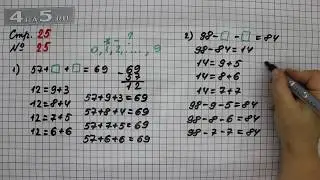 4bU.RS
Стр. 25
№ 25
* - ?
0, 1, 2, ..., 9
1) 57+□+□=69
69
- 57
12
12=9+3
12=8+4
12=7+5
12=6+6
57+9+3=69
57+8+4=69
57+7+5=69
57+6+6=69
2) 98-□-□=84
98-84=14
14=9+5
14=8+6
14=7+7
98-9-5=84
98-8-6=84
98-7-7=84